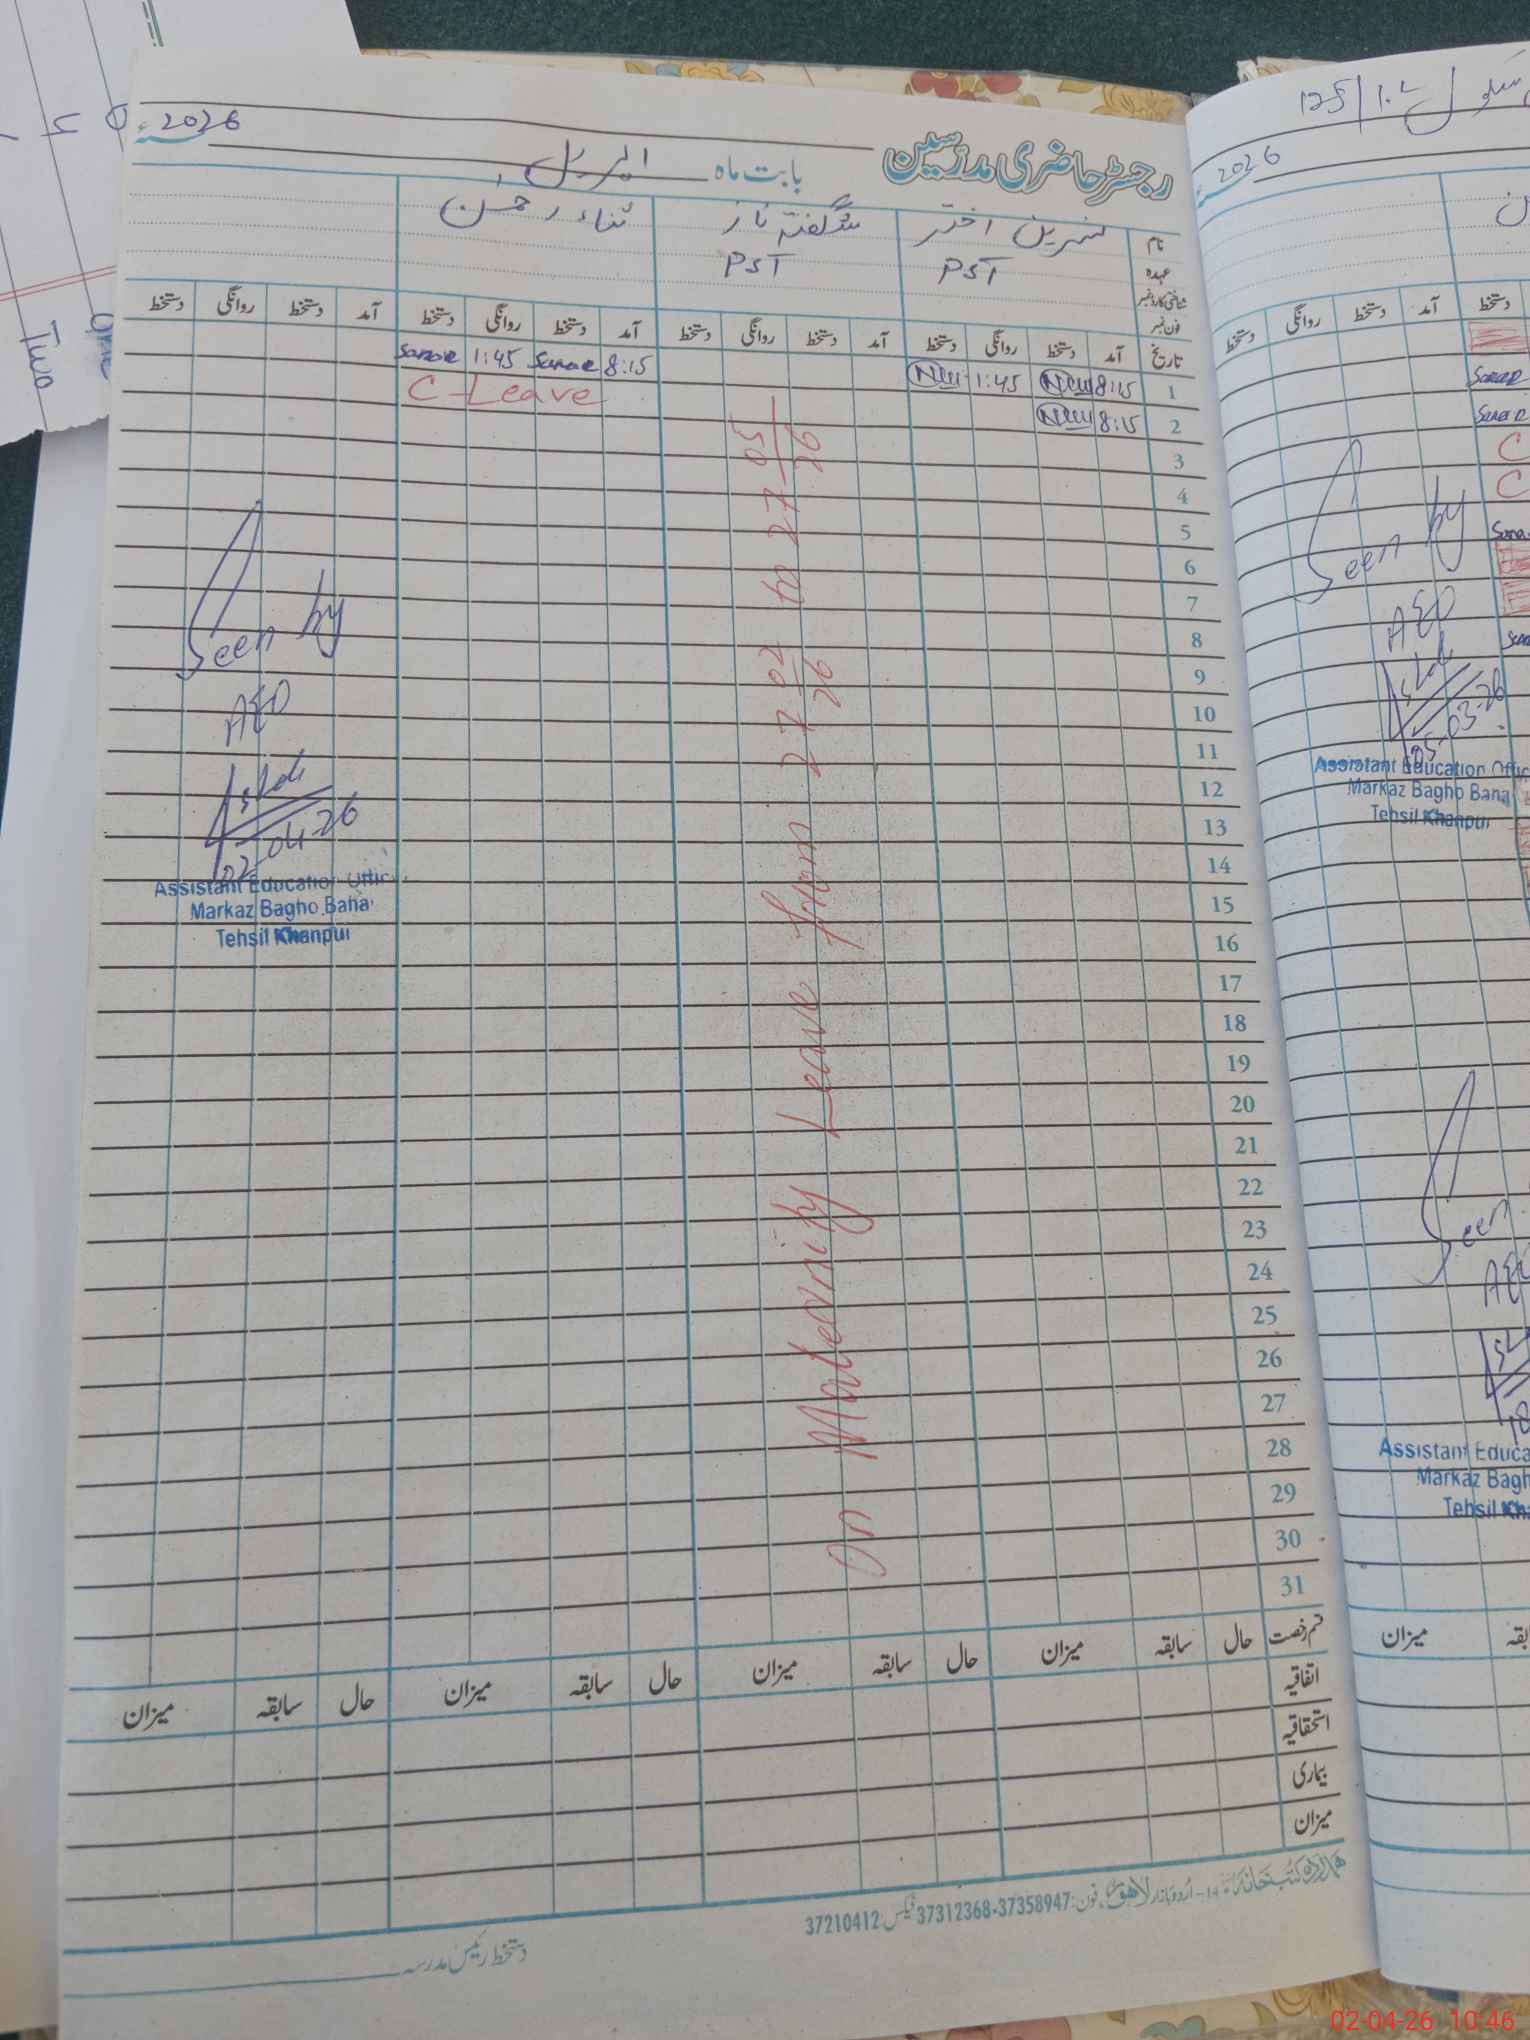 رجسٹر حاضری مدرسین بابت ماہ اپریل 2026
نام نسرین اختر شگفتہ ناز ثناء رحمٰن
عہدہ PST PST
شناختی کارڈ نمبر
فون نمبر
تاریخ آمد دستخط روانگی دستخط آمد دستخط روانگی دستخط آمد دستخط روانگی دستخط آمد دستخط روانگی دستخط
1 8:15 1:45 8:15 Sanae 1:45 Sanae
2 8:15 C-Leave
3
4
5
6
7
8
9
10
11
12
13
14
15
16
17
18
19
20
21
22
23
24
25
26
27
28
29
30
31
On Maternity Leave from 27 02/26 to 27 05/26
Seen by
AEO
02-04-26
Assistant Education Offic
Markaz Bagho Bahar
Tehsil Khanpur
قسم رخصت حال سابقہ میزان حال سابقہ میزان حال سابقہ میزان حال سابقہ میزان
اتفاقیہ
استحقاقیہ
بیماری
میزان
14-اردو بازار لاہور فون: 37358947-37312368 فیکس: 37210412
دستخط رئیس مدرسہ
125/1.L
2026
دستخط آمد دستخط روانگی دستخط
Seen by
AEO
05-03-26
Assistant Education Offic
Markaz Bagho Baha
Tehsil Khanpur
Seen
AEO
18
Assistant Educa
Markaz Bagh
Tehsil Kha
میزان
Two
One
02-04-26 10:46